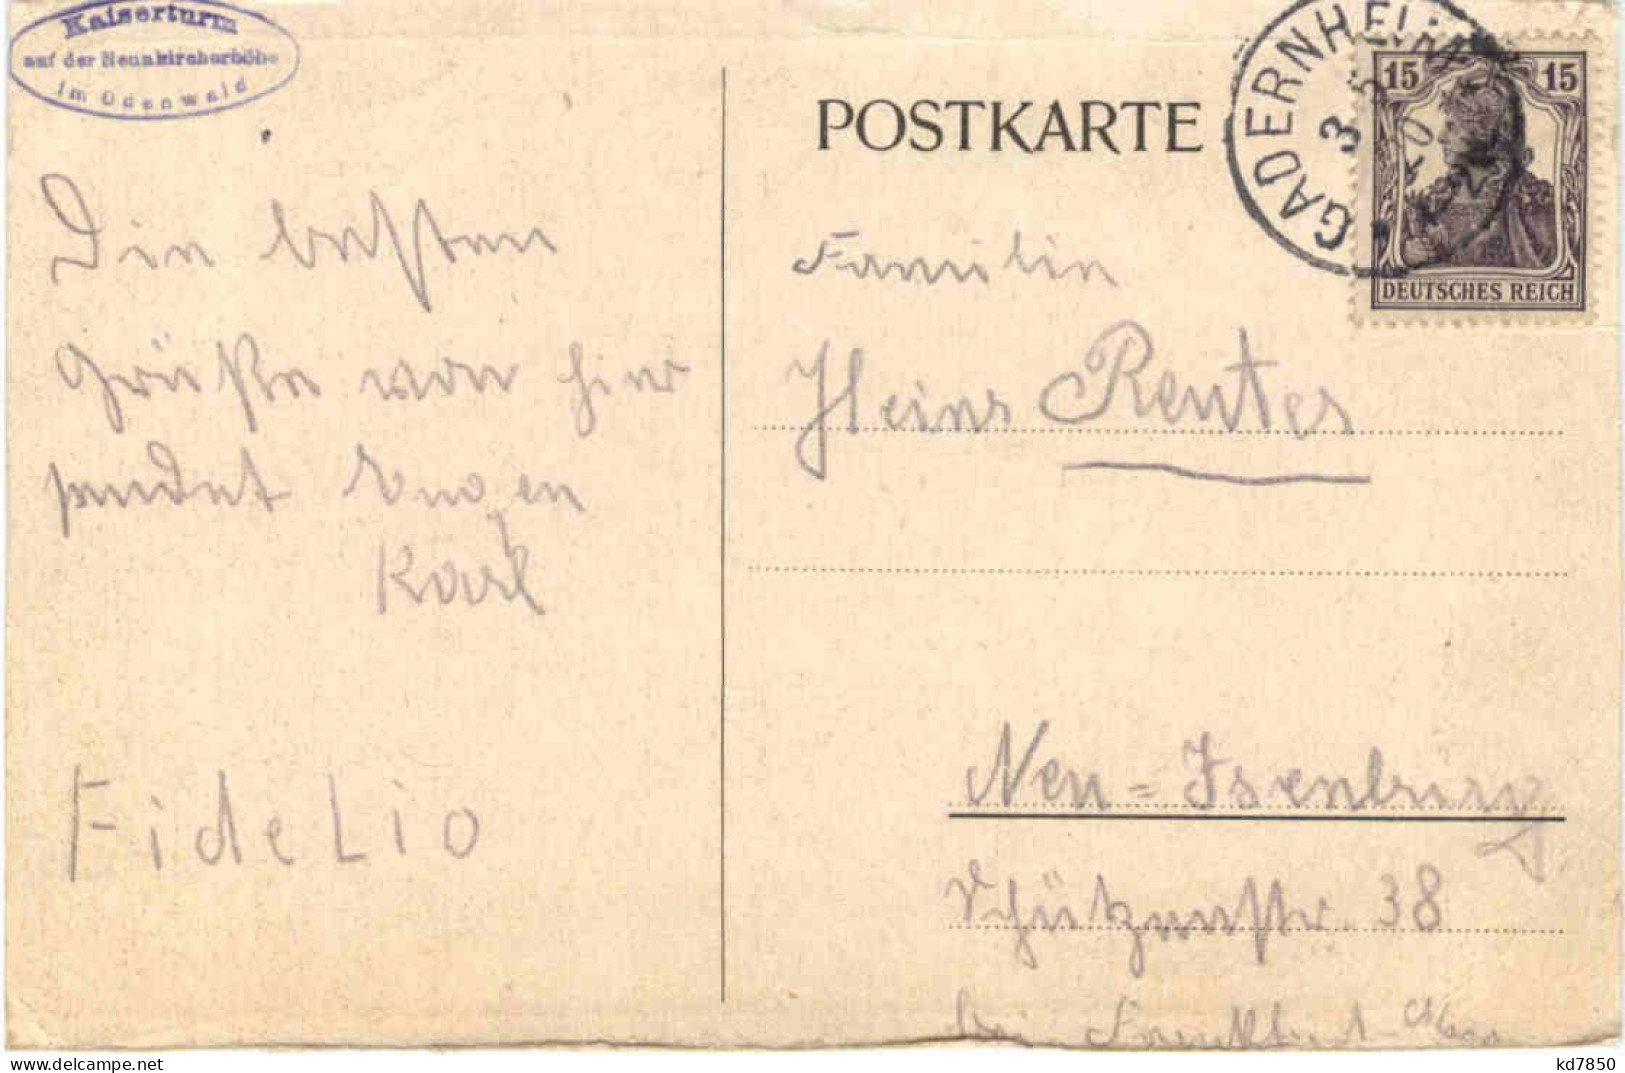 Kaiserturm
auf der Neunkircherhöhe
im Odenwald
Die besten
Grüße von hier
sendet Eugen
Karl
Fidelio
POSTKARTE
GADERNHEIM
3 5
15 15
DEUTSCHES REICH
Familie
Heinr Reuter
Neu-Isenburg
Schützenstr. 38
bei Frankfurt
delcampe.net
kd7850